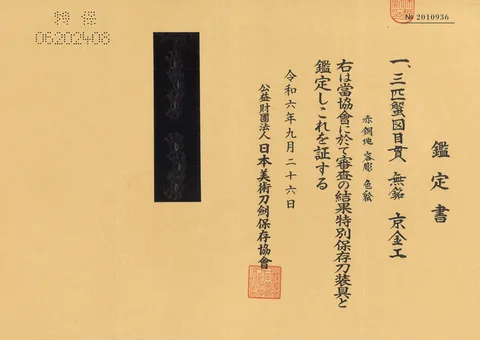 鑑定書
一、三匹蟹図目貫 無銘 京金工
赤銅地 容彫 色絵
右は當協會に於て審査の結果特別保存刀装具と
鑑定しこれを証する
令和六年九月二十六日
公益財團法人 日本美術刀劍保存協會
№ 2010936
特保
06202408